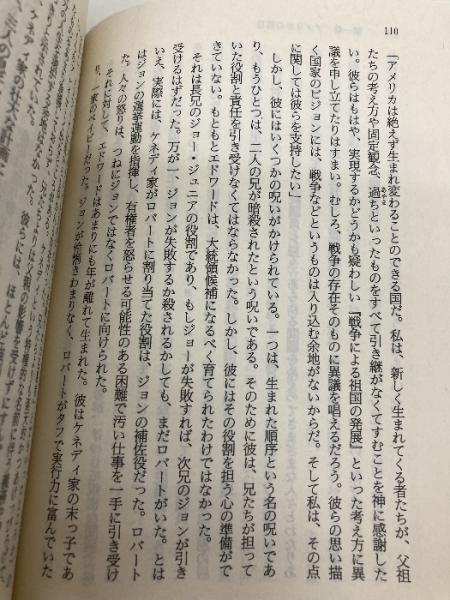 110
「アメリカは絶えず生まれ変わることのできる国だ。私は、新しく生まれてくる者たちが、父祖
たちの考え方や固定観念、過ちといったものをすべて引き継がなくてすむことを神に感謝した
い。彼らはもはや、実現するかどうかも疑わしい『戦争による祖国の発展』といった考え方に異
議を申し立てたりはすまい。むしろ、戦争の存在そのものに異議を唱えるだろう。彼らの思い描
く国家のビジョンには、戦争などというものは入り込む余地がないからだ。そして私は、その点
に関しては彼らを支持したい」
しかし、彼にはいくつかの呪いがかけられている。一つは、生まれた順序という名の呪いであ
り、もうひとつは、二人の兄が暗殺されたという呪いである。そのために彼は、兄たちが担って
いた役割と責任を引き受けなくてはならなかった。しかし、彼にはその役割を担う心の準備がで
きていない。もともとエドワードは、大統領候補になるべく育てられたわけではなかった。
それは長兄のジョー・ジュニアの役割であり、もしジョーが失敗すれば、次兄のジョンが引き
受けるはずだった。万が一、ジョンが失敗するか殺されるかしても、まだロバートがいた。とは
いえ、実際には、ケネディ家がロバートに割り当てた役割は、ジョンの補佐役だった。ロバート
はジョンの選挙運動を指揮し、有権者を怒らせる可能性のある困難で汚い仕事を一手に引き受け
た。人々の怒りは、つねにジョンではなくロバートに向けられた。
それに対して、エドワードはあまりにも年が離れて生まれた。彼はケネディ家の末っ子であ
り、一家のベイビーだった。ジョンが
ロバートがタフで実行力に富んでいた